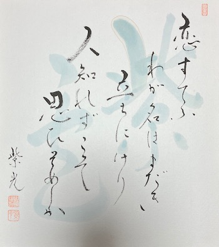 恋すてふ
わが名はまだき
立ちにけり
人知れずこそ
思ひそめしか
紫光